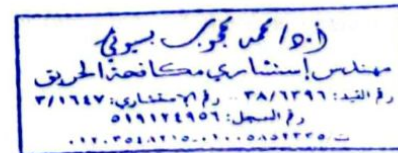 أ.د/ محمد محجوب بسيوني
مهندس إستشاري مكافحة الحريق
رقم القيد: ٣٨/٦٣٩٦ رقم الاستشاري: ٣/١٦٤٧
رقم السجل: ٥١٩١٢٤٩٥٦
ت: ٠١٠٠٥٨٥٢٣٣٥ - ٠١٢٠٣٥٤٨٢١٥